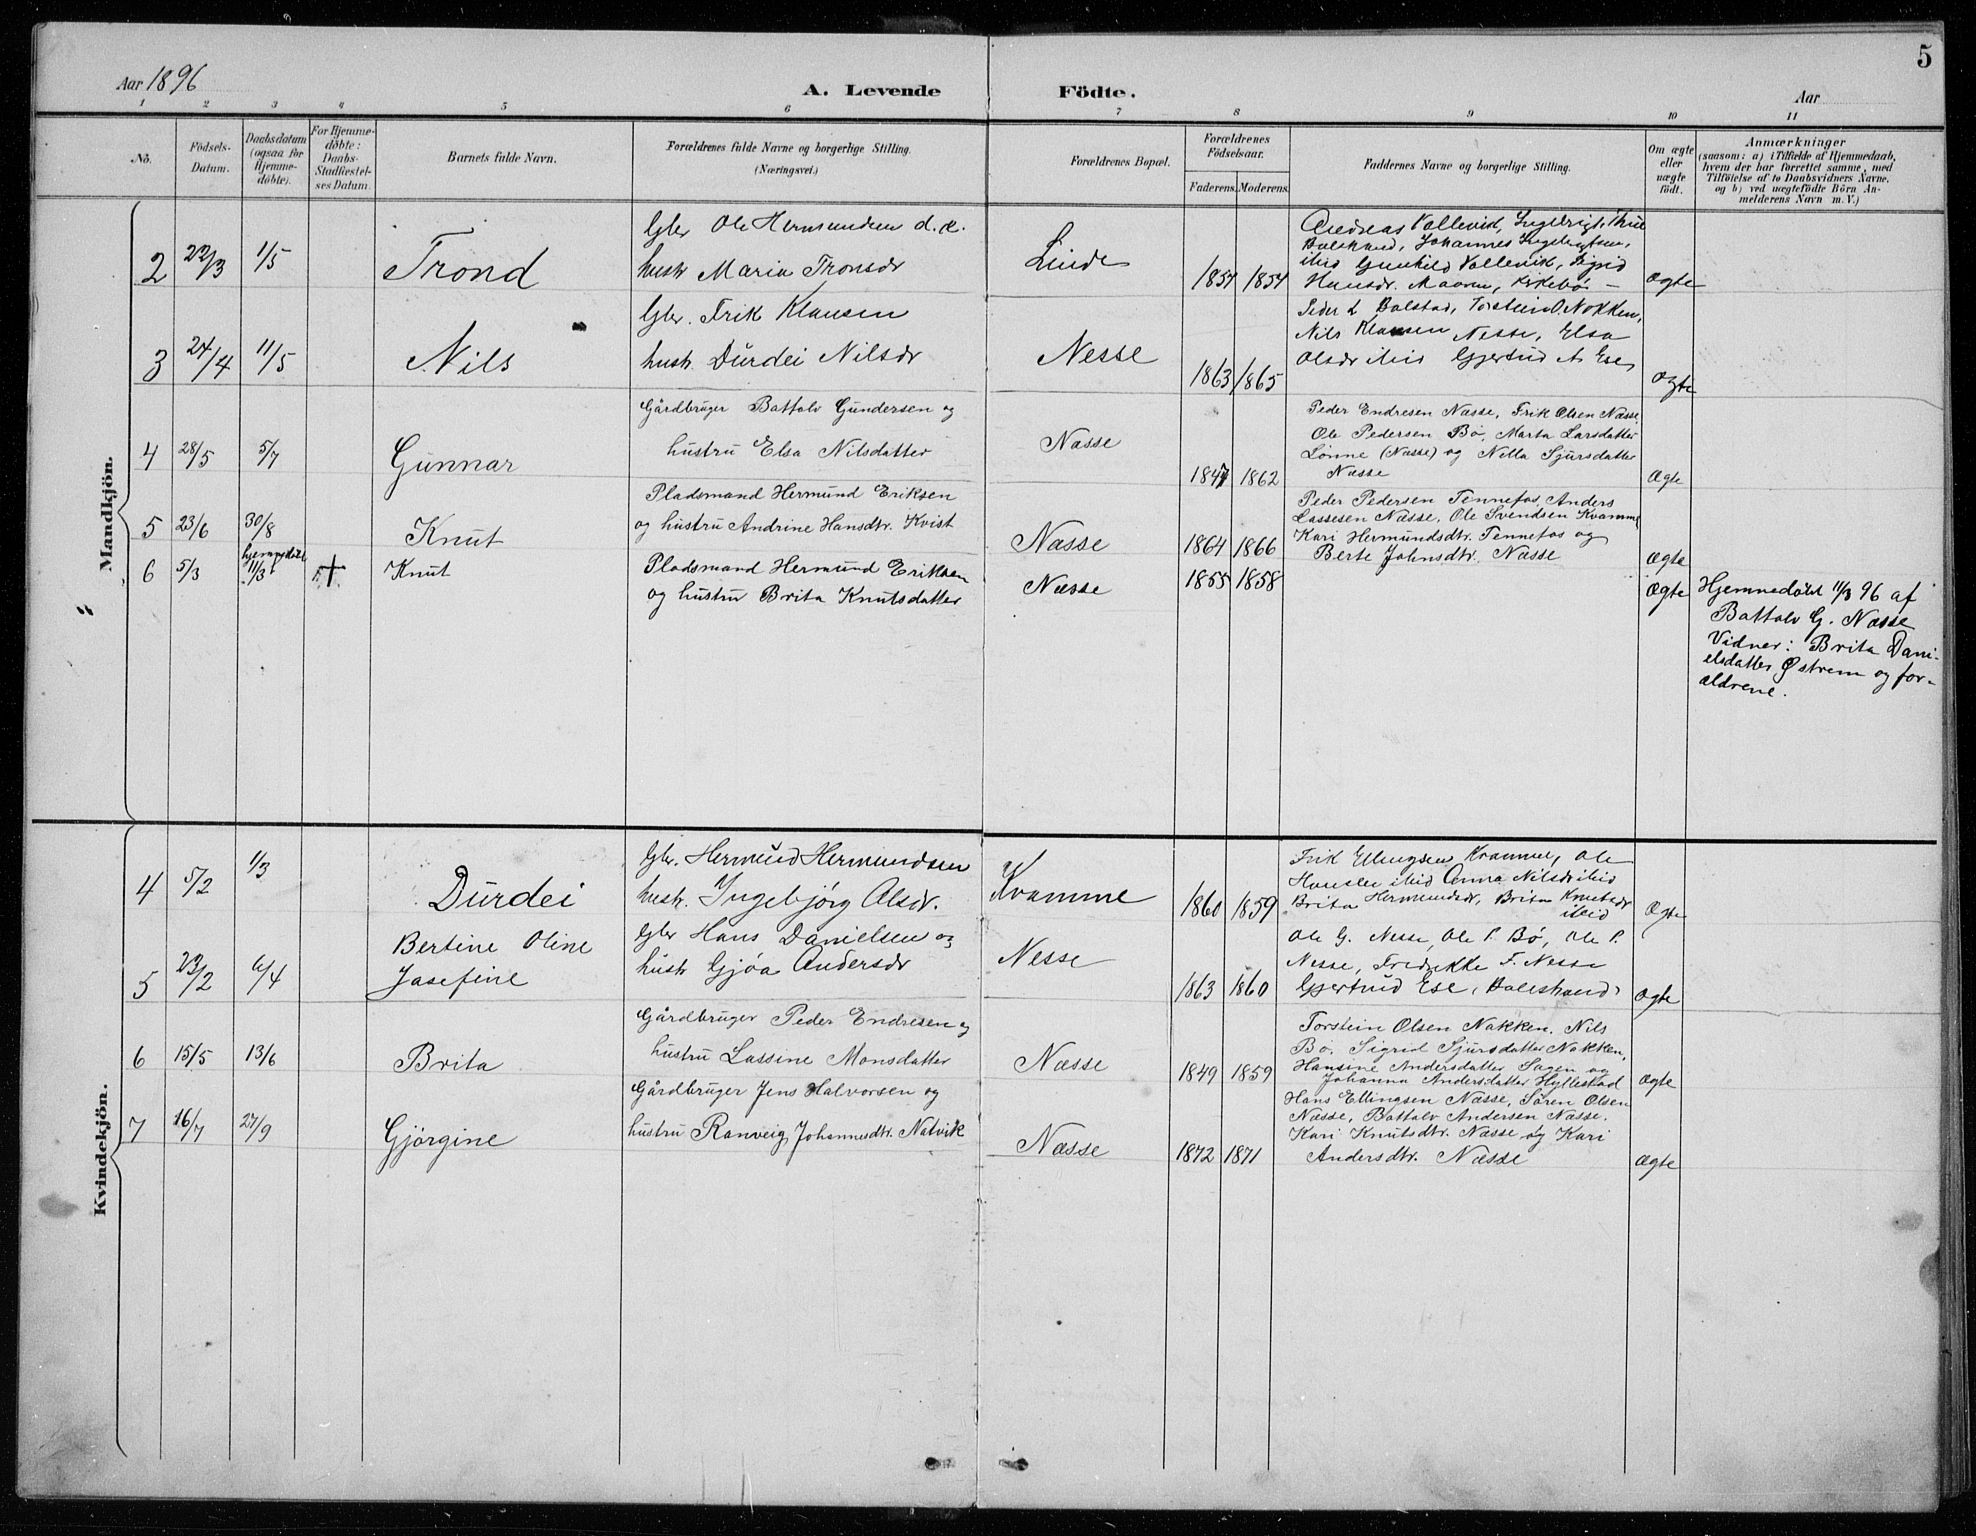 5
Aar 1896
A. Levende Födte.
Aar
1 2 3 4 5 6 7 8 9 10 11
No.
Födsels-Datum.
Daabsdatum (ogsaa for Hjemme-döbte).
For Hjemme-döbte: Daabs-Stadfæstel-ses Datum.
Barnets fulde Navn.
Forældrenes fulde Navne og borgerlige Stilling.
(Næringsvei.)
Forældrenes Bopæl.
Forældrenes Födselsaar.
Faderens. Moderens.
Faddernes Navne og borgerlige Stilling.
Om ægte eller uægte födt.
Anmærkninger
(saasom: a) i Tilfælde af Hjemmedaab,
hvem der har forrettet samme, med
Tilföielse af to Daabsvidners Navne,
og b) ved uægtefödte Börn An-
melderens Navn m. V.)
Mandkjön.
2 22/3 1/5 Trond
Gbr Ole Hermundsen d.e.
hustr Maria Tronsdr
Linde
1857 1854
Andreas Vallevik, Ingebrigt Thue
Balestrand, Johannes Ingebrigtsen,
ibid Gunhild Vallevik, Sigrid
Hansdr. Maaren, Kirkebø –
Ægte
3 24/4 11/5 Nils
Gbr. Erik Klausen
hustr. Durdei Nilsdr
Nesse
1863 1865
Peder L Balstad, Torstein O Nokken,
Nils Klausen Nesse, Elsa
Olsdr ibid Gjertrud A Ese
Ægte
4 28/5 5/7 Gunnar
Gårdbruger Battolv Gundersen og
hustru Elsa Nilsdatter
Næsse
1847 1862
Peder Endresen Næsse, Erik Olsen Næsse,
Ole Pedersen Bø, Marta Larsdatter
Lønne (Næsse) og Nella Sjursdatter
Næsse
Ægte
5 23/6 30/8 Knut
Pladsmand Hermund Eriksen
og hustru Andrine Hansdtr. Kvist
Næsse
1864 1866
Peder Pedersen Tennefos, Anders
Lassesen Næsse, Ole Svendsen Kvamme
Kari Hermundsdtr. Tennefos og
Berte Johnsdtr. Næsse
Ægte
6 5/3 hjemmedöbt 11/3 + Knut
Pladsmand Hermund Eriksen
og hustru Brita Knutsdatter
Næsse
1855 1858
Ægte
Hjemmedöbt 11/3 96 af
Battolv G. Næsse
Vidner: Brita Dani-
elsdatter Østrem og for-
ældrene.
Kvindekjön.
4 5/2 1/3 Durdei
Gbr. Hermund Hermundsen
hustr. Ingebjørg Olsdr.
Kvamme
1860 1859
Erik Ellingsen Kvamme, Ole
Hansen ibid Anna Nilsdr ibid
Brita Hermundsdr, Brita Knutsdr
ibid
Ægte
5 23/2 6/4 Bertine Oline
Josefine
Gbr Hans Danielsen og
hustr Gjøa Andersdr
Nesse
1863 1860
Ole G. Nesse, Ole P. Bø, Ole P.
Nesse, Fredrikke F. Nesse
Gjertrud Ese, Balestrand
Ægte
6 15/5 13/6 Brita
Gårdbruger Peder Endresen og
hustru Lassine Monsdatter
Næsse
1849 1859
Torstein Olsen Nokken, Nils
Bø. Sigrid Sjursdatter Nokken,
Hansine Andersdatter Sagen og
Johanna Andersdatter Hyllestad
Ægte
7 16/7 27/9 Gjörgine
Gårdbruger Jens Halvorsen og
hustru Ranveig Johannesdtr. Natvik
Næsse
1872 1871
Hans Ellingsen Næsse, Søren Olsen
Næsse, Battolv Andersen Næsse.
Kari Knutsdtr. Næsse og Kari
Andersdtr. Næsse
Ægte